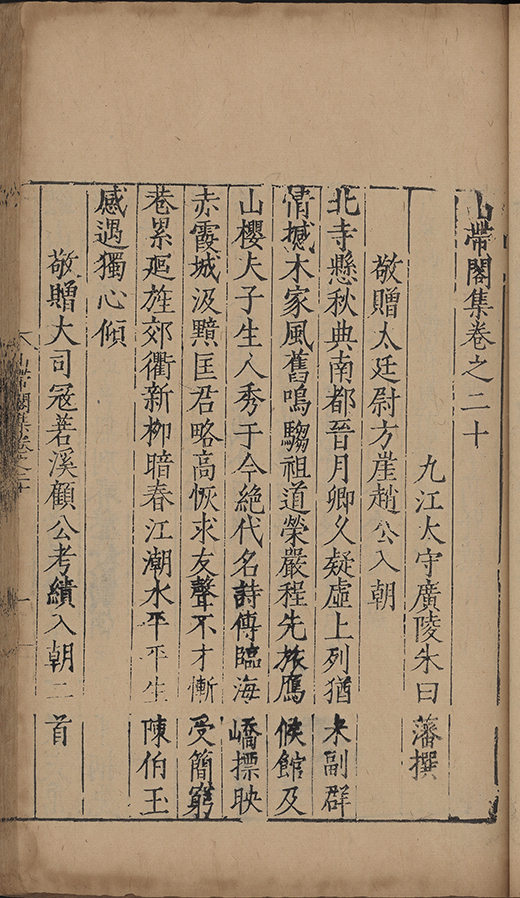 山帶閣集卷之二十
九江太守廣陵朱曰藩撰
敬贈太廷尉方崖趙公入朝
北寺懸秋典南都晉月卿久疑虛上列猶未副群
情撼木家風舊鳴騶祖道榮嚴程先旅鴈候館及
山櫻夫子生人秀于今絶代名詩傳臨海嶠摽映
赤霞城汲黯匡君略高恢求友聲不才慚受簡窮
巷累廻旌郊衢新柳暗春江潮水平平生陳伯玉
感遇獨心傾
敬贈大司冦箬溪顧公考績入朝二首
山帶閣集卷之二十
一